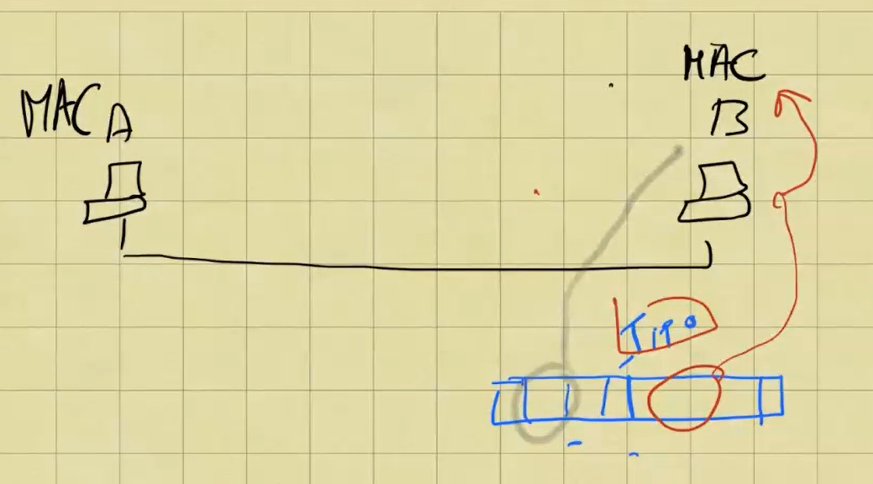 MAC
B
MAC A
TIPO